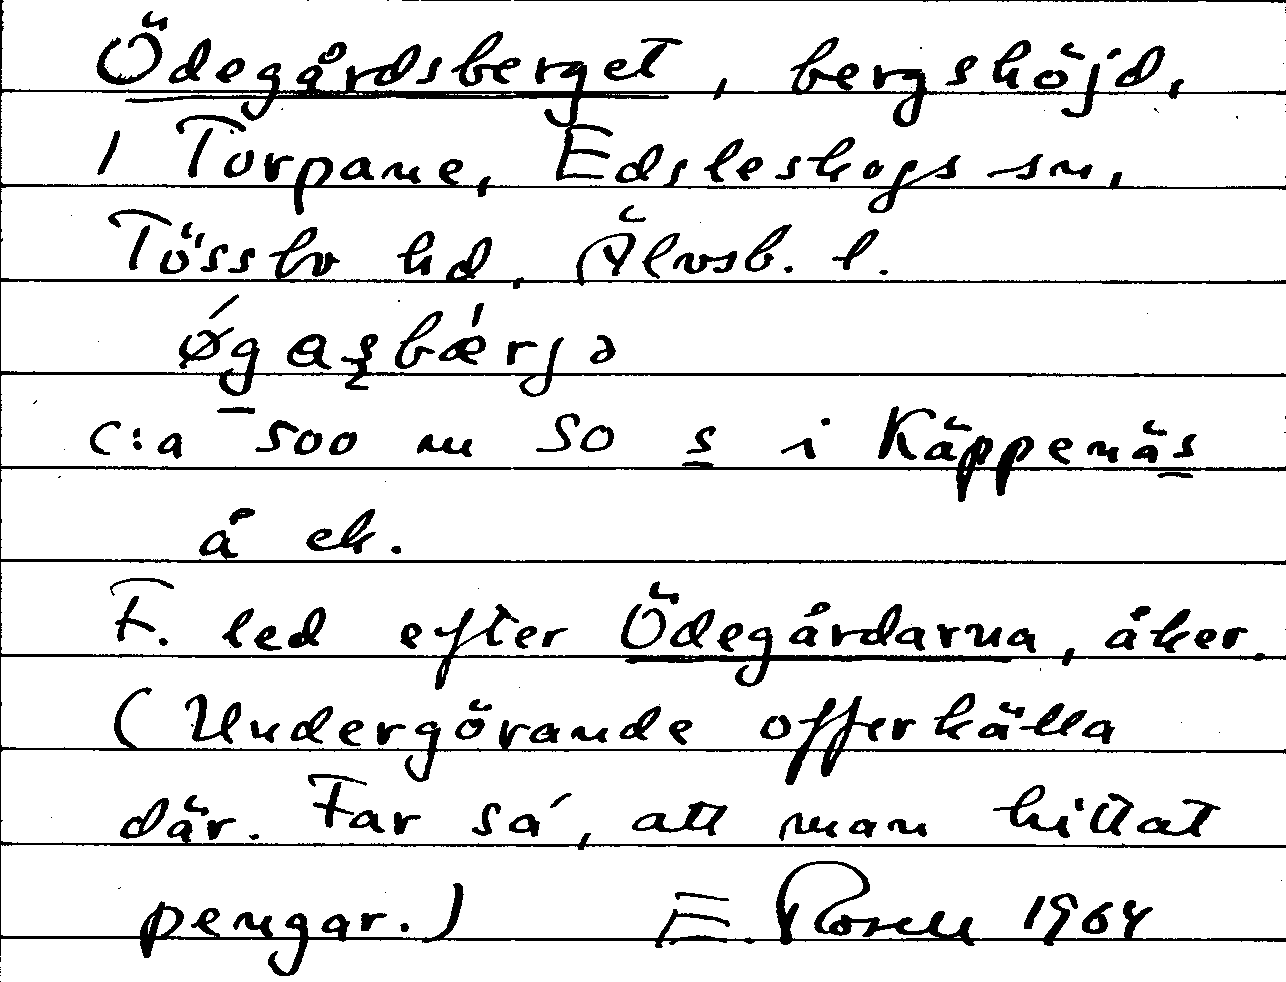 Ödegårdsberget, bergshöjd,
i Torpane, Edsleskogs sn,
Tössbo hd, Älvsb. l.
ǿgaʂbǽrjə
c:a 500 m SO s i Käppenäs
å ek.
F. led efter Ödegårdarna, åker.
(Undergörande offerkälla
där. Far sá, att man hittat
pengar.) E. Rosell 1964